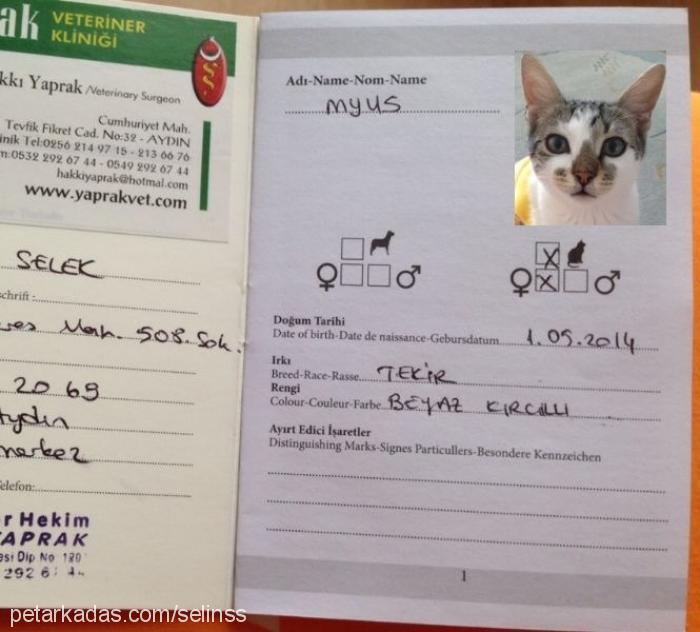 ak VETERİNER
KLİNİĞİ
kkı Yaprak /Veterinary Surgeon
Cumhuriyet Mah.
Tevfik Fikret Cad. No:32 - AYDIN
inik Tel:0256 214 97 15 - 213 66 76
m:0532 292 67 44 - 0549 292 67 44
hakkiyaprak@hotmal.com
www.yaprakvet.com
SELEK
schrift :
Mah. 508. Sok.
20 69
Aydın
merkez
Telefon:
r Hekim
YAPRAK
esi Dip No 120
292 6
Adı-Name-Nom-Name
MYUS
♀ ♂
♀ X X ♂
Doğum Tarihi
Date of birth-Date de naissance-Gebursdatum 1.05.2014
Irkı
Breed-Race-Rasse TEKİR
Rengi
Colour-Couleur-Farbe BEYAZ KIRCILLI
Ayırt Edici İşaretler
Distinguishing Marks-Signes Particullers-Besondere Kennzeichen
1
petarkadas.com/selinss